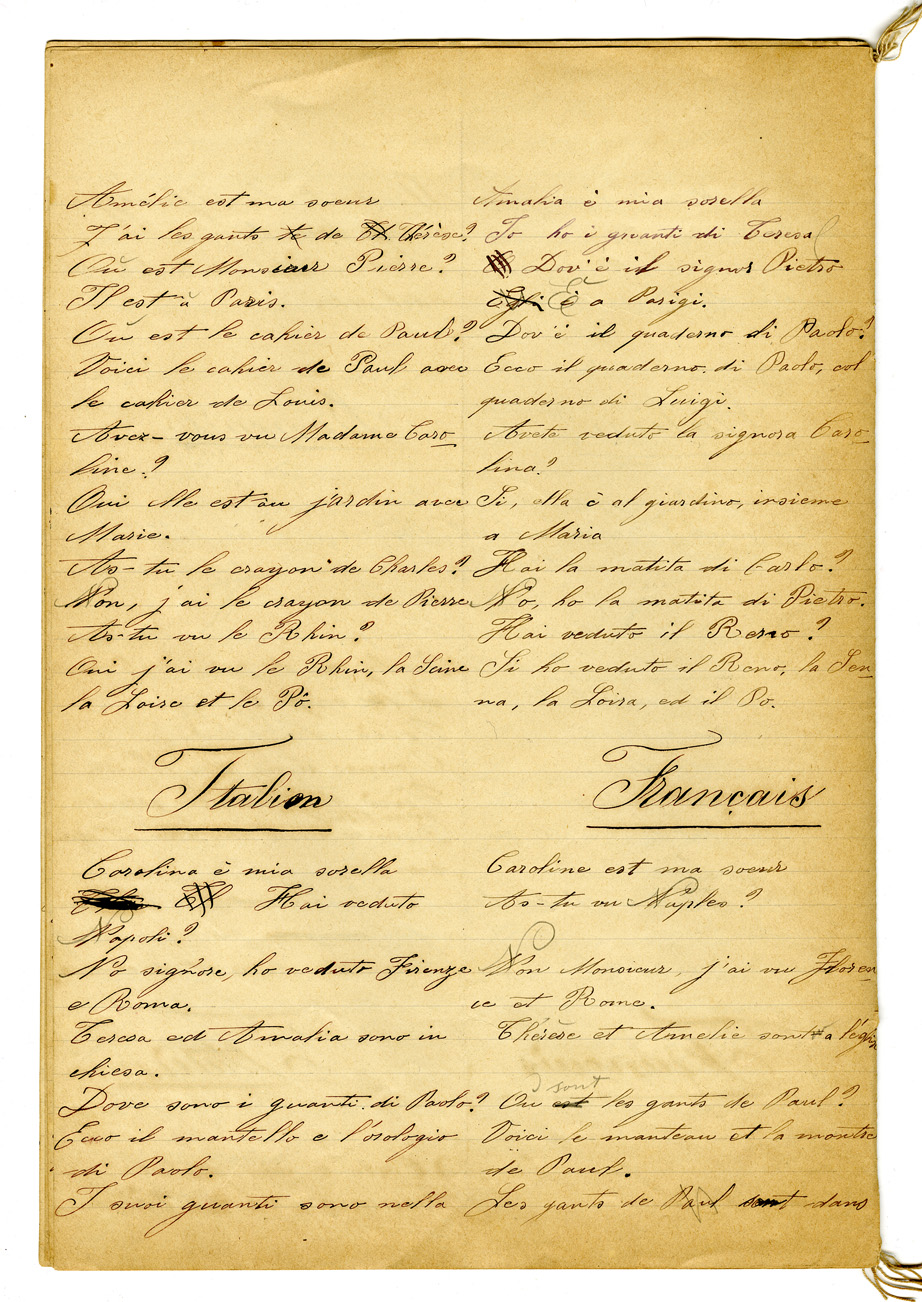 Amélie est ma soeur
J'ai les gants te de Th Thérèse?
Où est Monsieur Pierre?
Il est à Paris.
Où est le cahier de Paul?
Voici le cahier de Paul avec
le cahier de Louis.
Avez-vous vu Madame Caro_
line?
Oui elle est au jardin avec
Marie.
As-tu le crayon de Charles?
Non, j'ai le crayon de Pierre
As-tu vu le Rhin?
Oui j'ai vu le Rhin, la Seine
la Loire et le Pô.
Amalia è mia sorella
Io ho i guanti di Teresa
Dov'è il signor Pietro
Egli È a Parigi.
Dov'è il quaderno di Paolo?
Ecco il quaderno di Paolo, col
quaderno di Luigi.
Avete veduto la signora Caro_
lina?
Si, ella è al giardino, insieme
a Maria
Hai la matita di Carlo?
No, ho la matita di Pietro.
Hai veduto il Reno?
Si ho veduto il Reno, la Sen_
na, la Loira, ed il Po.
Italien
Carolina è mia sorella
Hai veduto
Napoli?
No signore, ho veduto Firenze
e Roma.
Teresa ed Amalia sono in
chiesa.
Dove sono i guanti di Paolo?
Ecco il mantello e l'orologio
di Paolo.
I suoi guanti sono nella
Français
Caroline est ma soeur
As-tu vu Naples?
Non Monsieur, j'ai vu Floren_
ce et Rome.
Thérèse et Amelie sont a l'église
sont
Ou est les gants de Paul?
Voici le manteau et la montre
de Paul.
Les gants de Paul sont dans